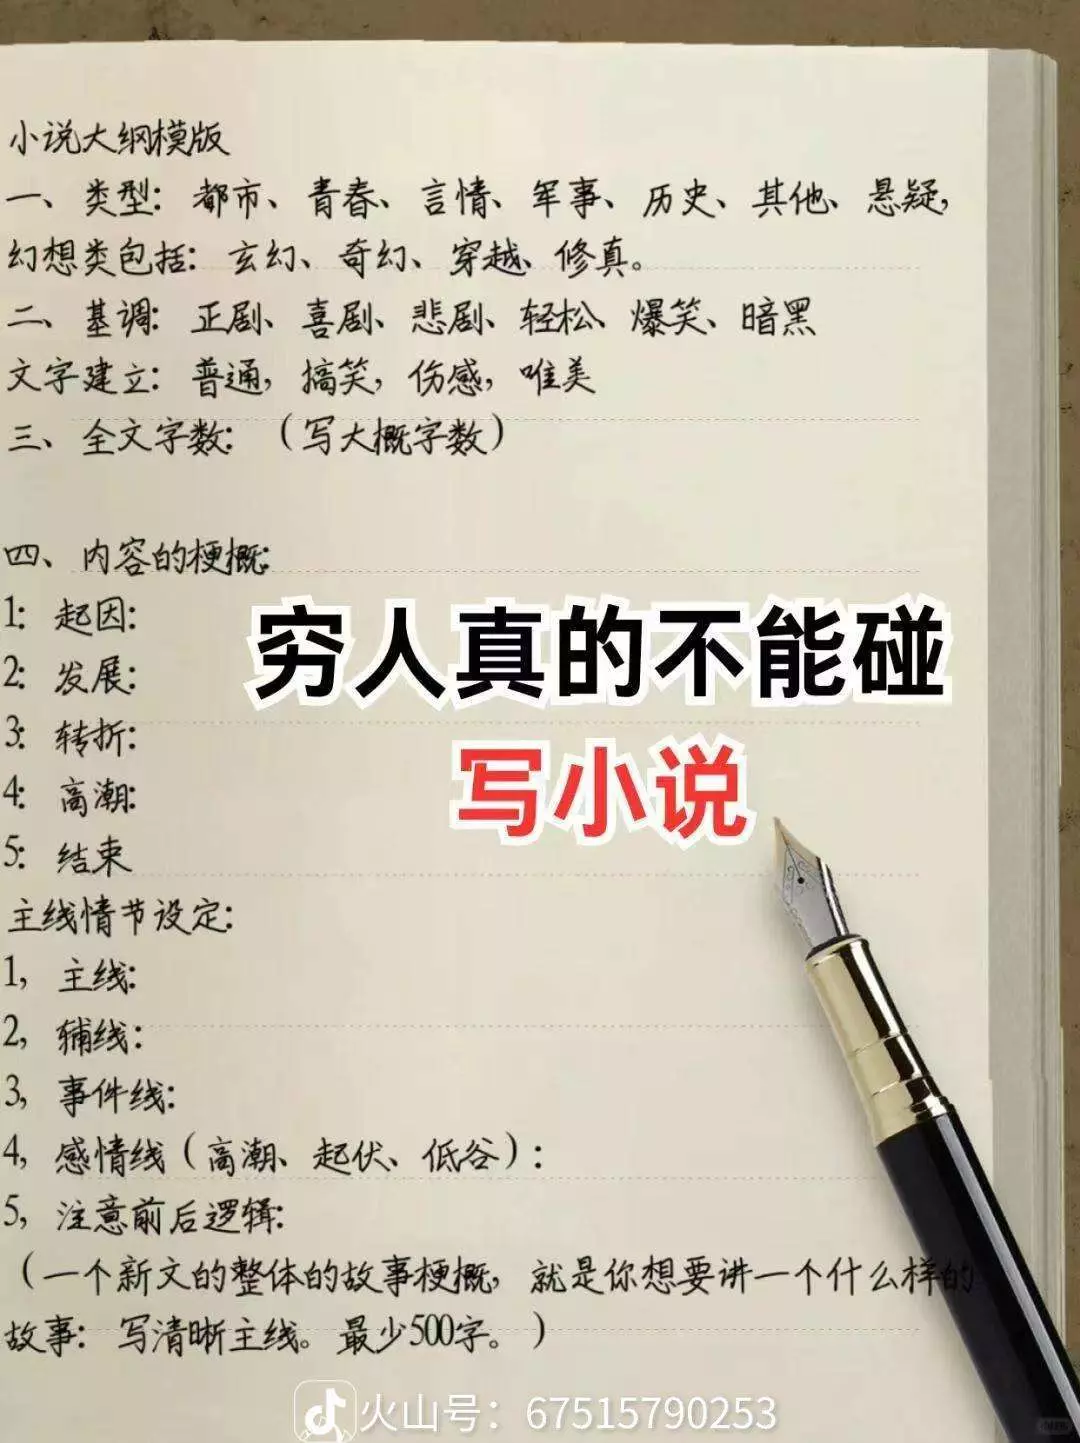 小说大纲模版
一、类型：都市、青春、言情、军事、历史、其他、悬疑，
幻想类包括：玄幻、奇幻、穿越、修真。
二、基调：正剧、喜剧、悲剧、轻松、爆笑、暗黑
文字建立：普通，搞笑，伤感，唯美
三、全文字数：（写大概字数）
四、内容的梗概：
1：起因：
2：发展：
3：转折：
4：高潮：
5：结束
穷人真的不能碰
写小说
主线情节设定：
1，主线：
2，辅线：
3，事件线：
4，感情线（高潮、起伏、低谷）：
5，注意前后逻辑：
（一个新文的整体的故事梗概，就是你想要讲一个什么样的
故事：写清晰主线。最少500字。）
火山号：67515790253